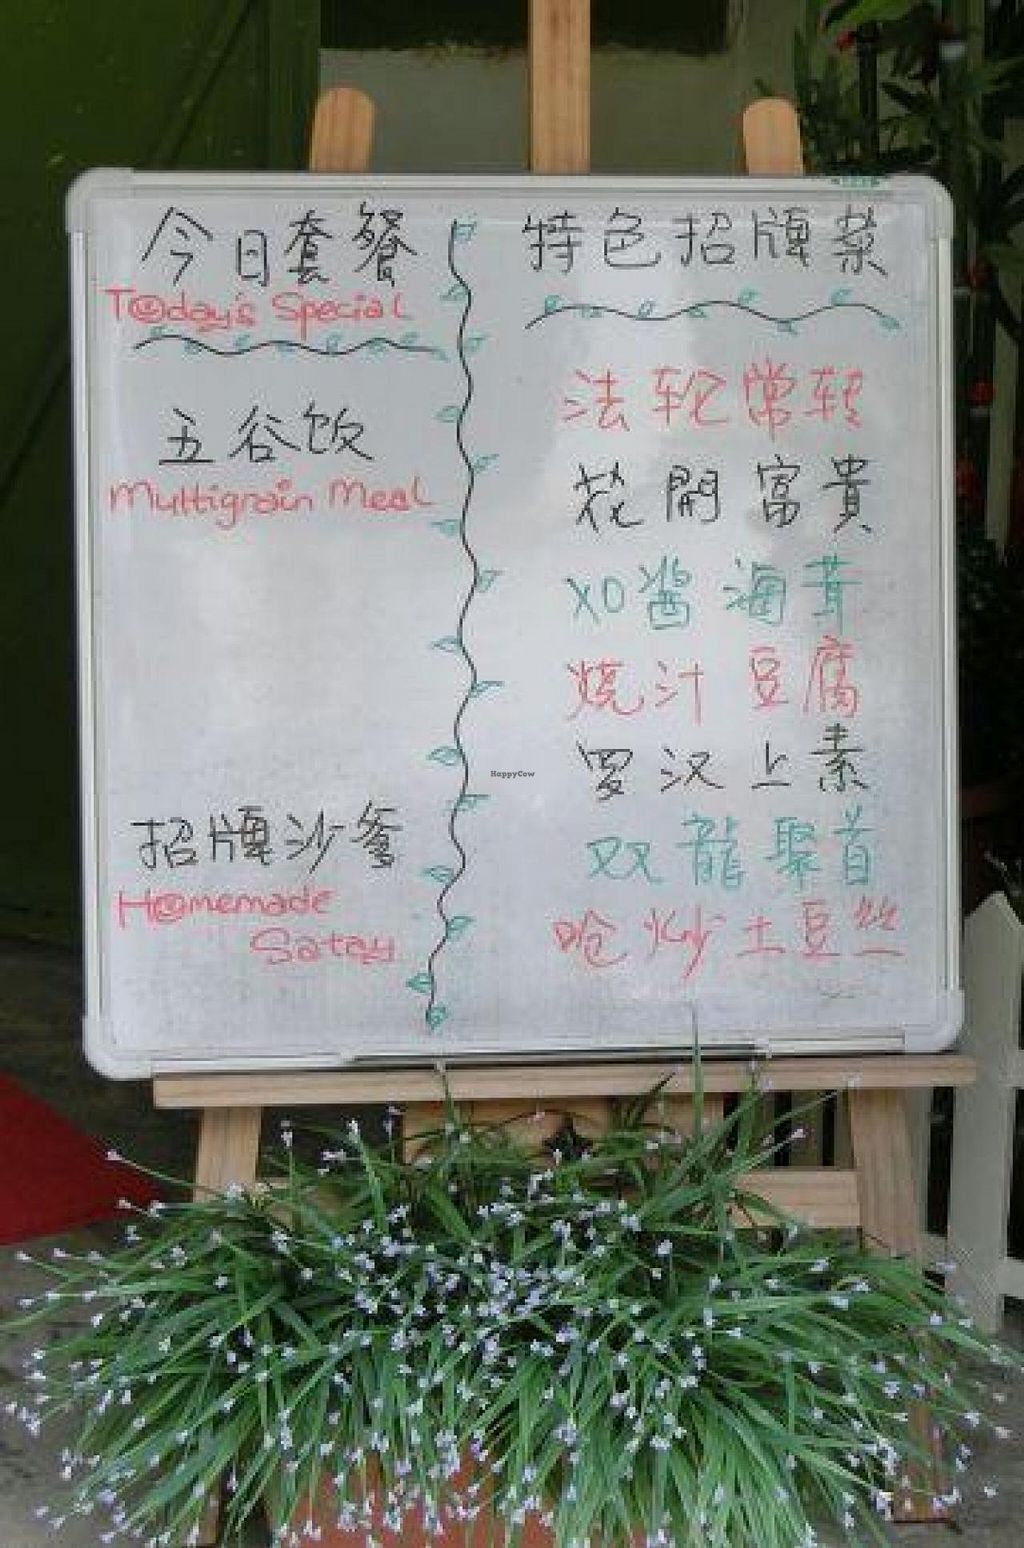 今日套餐
Today's Special
五谷饭
Multigrain Meal
招牌沙爹
Homemade
Satay
特色招牌菜
法轮常转
花開富貴
XO酱海茸
烧汁豆腐
罗汉上素
双龍聚首
呛炒土豆丝
HappyCow